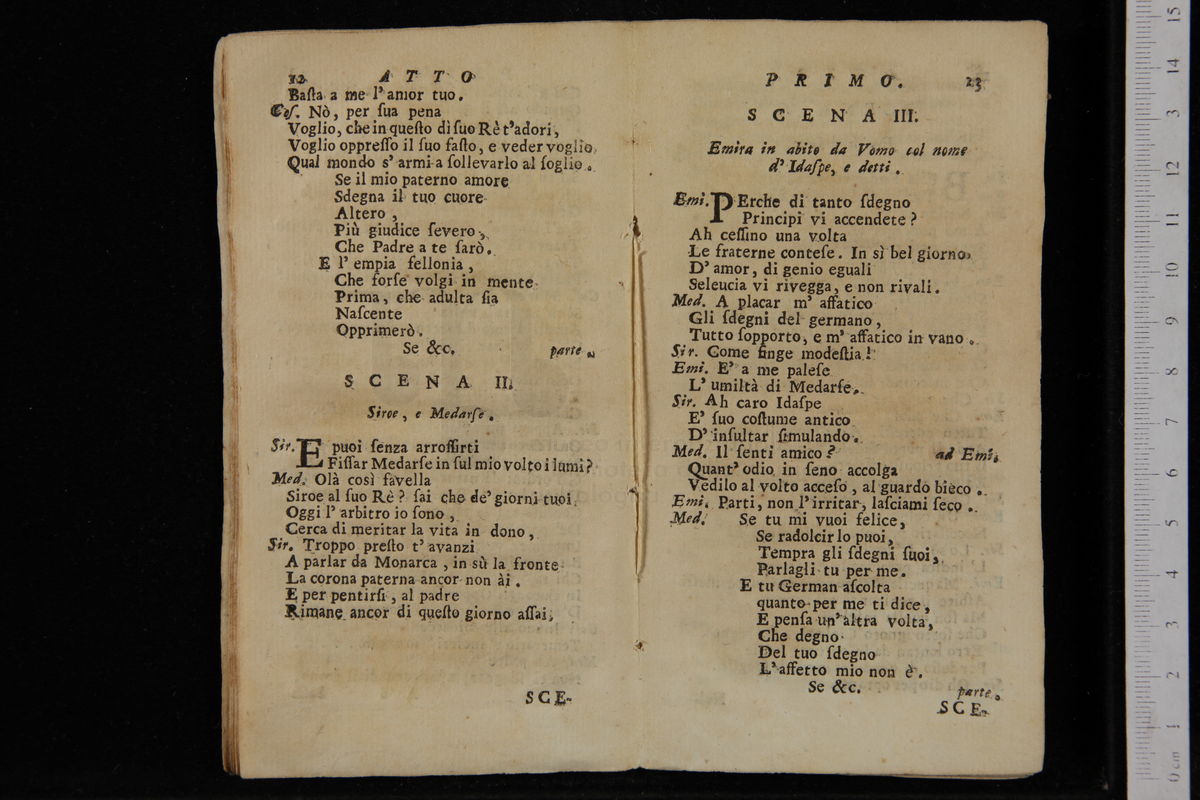 12 ATTO
Baſta a me l'amor tuo.
Coſ. Nò, per ſua pena
Voglio, che in queſto dì ſuo Rè t'adori,
Voglio oppreſſo il ſuo faſto, e veder voglio
Qual mondo s' armi a ſollevarlo al ſoglio.
Se il mio paterno amore
Sdegna il tuo cuore
Altero,
Più giudice ſevero,
Che Padre a te ſarò.
E l' empia fellonia,
Che forſe volgi in mente
Prima, che adulta ſia
Naſcente
Opprimerò.
Se &c. parte.
SCENA II.
Siroe, e Medarſe.
Sir. E puoi ſenza arroſſirti
Fiſſar Medarſe in ſul mio volto i lumi?
Med. Olà così favella
Siroe al ſuo Rè? ſai che de' giorni tuoi
Oggi l' arbitro io ſono,
Cerca di meritar la vita in dono,
Sir. Troppo preſto t' avanzi
A parlar da Monarca, in sù la fronte
La corona paterna ancor non ài.
E per pentirſi, al padre
Rimane ancor di queſto giorno aſſai;
SCE-
PRIMO. 23
SCENA III.
Emira in abito da Vomo col nome
d' Idaſpe, e detti.
Emi. PErche di tanto ſdegno
Principi vi accendete?
Ah ceſſino una volta
Le fraterne conteſe. In sì bel giorno
D' amor, di genio eguali
Seleucia vi rivegga, e non rivali.
Med. A placar m' affatico
Gli ſdegni del germano,
Tutto ſopporto, e m' affatico in vano.
Sir. Come finge modeſtia!
Emi. E' a me paleſe
L' umiltà di Medarſe.
Sir. Ah caro Idaſpe
E' ſuo coſtume antico
D' inſultar ſimulando.
Med. Il ſenti amico? ad Emi.
Quant' odio in ſeno accolga
Vedilo al volto acceſo, al guardo bieco.
Emi. Parti, non l'irritar, laſciami ſeco.
Med. Se tu mi vuoi felice,
Se radolcir lo puoi,
Tempra gli ſdegni ſuoi,
Parlagli tu per me.
E tu German aſcolta
quanto per me ti dice,
E penſa un' altra volta,
Che degno
Del tuo ſdegno
L' affetto mio non è.
Se &c. parte.
SCE-
0 cm 1 2 3 4 5 6 7 8 9 10 11 12 13 14 15